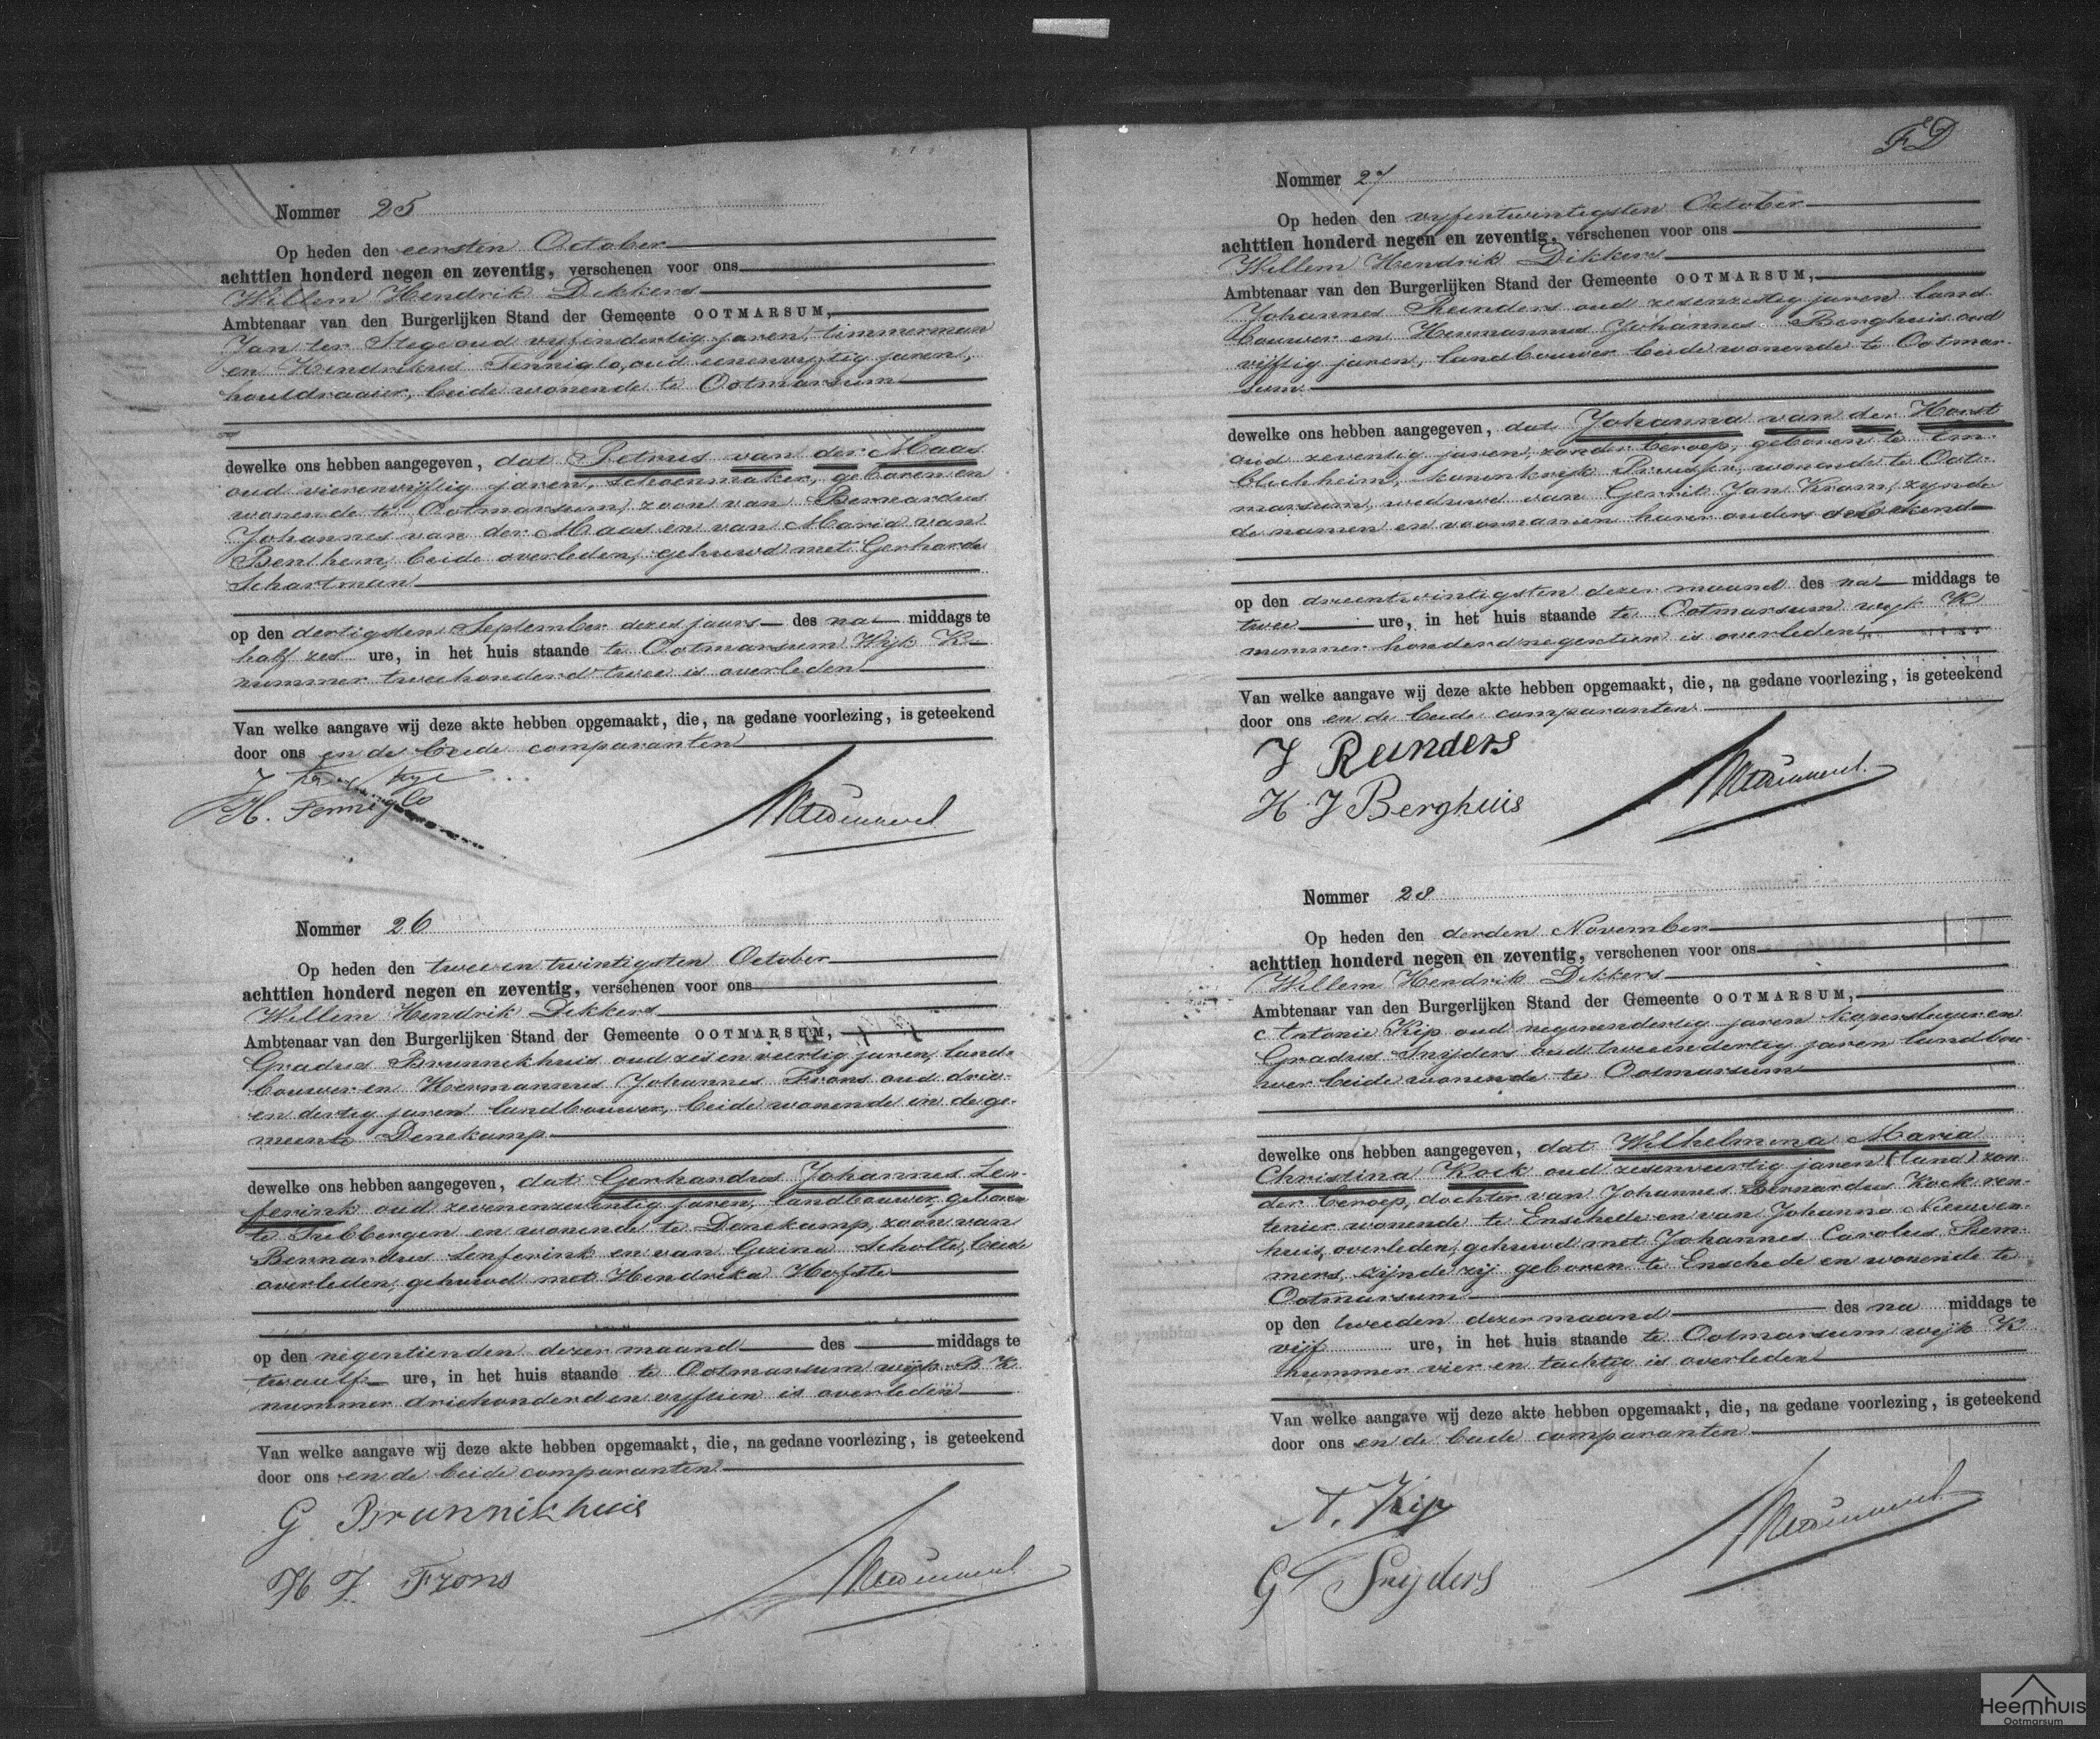 Nommer 25
Op heden den eersten October
achttien honderd negen en zeventig, verschenen voor ons
Willem Hendrik Dikkers
Ambtenaar van den Burgerlijken Stand der Gemeente OOTMARSUM,
Jan ter Stege oud vyfendertig jaren, timmerman
en Hendrikus Fenniglo, oud eenenvyftig jaren,
houtdraaier, beide wonende te Ootmarsum
dewelke ons hebben aangegeven, dat Petrus van der Maas
oud vierenvyftig jaren, schoenmaker, geboren en
wonende te Ootmarsum, zoon van Bernardus
Johannes van der Maas en van Maria van
Benthem, beide overleden, gehuwd met Gerharda
Schartman
op den dertigsten September dezes jaars des na middags te
half zes ure, in het huis staande te Ootmarsum Wijk K
nummer tweehonderd twee is overleden
Van welke aangave wij deze akte hebben opgemaakt, die, na gedane voorlezing, is geteekend
door ons en de beide comparanten
J ter Stege
H. Fenniglo
Nommer 26
Op heden den twee en twintigsten October
achttien honderd negen en zeventig, verschenen voor ons
Willem Hendrik Dikkers
Ambtenaar van den Burgerlijken Stand der Gemeente OOTMARSUM,
Gradus Brunnekhuis oud zes en veertig jaren, land-
bouwer en Hermannus Johannes Frons oud drie-
en dertig jaren landbouwer, beide wonende in de ge-
meente Denekamp
dewelke ons hebben aangegeven, dat Gerhardus Johannes Sen-
ferink oud zevenenzeventig jaren, landbouwer, geboren
te Tubbergen en wonende te Denekamp, zoon van
Bernardus Senferink en van Gezina Scholte, beide
overleden, gehuwd met Hendrika Hofste
op den negentienden dezer maand des middags te
twaalf ure, in het huis staande te Ootmarsum wijk B K
nummer driehonderd en vyftien is overleden
Van welke aangave wij deze akte hebben opgemaakt, die, na gedane voorlezing, is geteekend
door ons en de beide comparanten
G. Brunnikhuis
H J. Frons
FD
Nommer 27
Op heden den vyfentwintigsten October
achttien honderd negen en zeventig, verschenen voor ons
Willem Hendrik Dikkers
Ambtenaar van den Burgerlijken Stand der Gemeente OOTMARSUM,
Johannes Reinders oud zesenzestig jaren land-
bouwer en Hermannus Johannes Berghuis oud
vijftig jaren, landbouwer beide wonende te Ootmar-
sum
dewelke ons hebben aangegeven, dat Johanna van der Horst
oud zeventig jaren, zonder beroep, geboren te Em-
blichheim, koninkrijk Pruissen, wonende te Oot-
marsum, weduwe van Gerrit Jan Krom, zynde
de namen en voornamen harer ouders onbekend
op den drieentwintigsten dezer maand des na middags te
twee ure, in het huis staande te Ootmarsum wyk K
nummer honderd negentien is overleden
Van welke aangave wij deze akte hebben opgemaakt, die, na gedane voorlezing, is geteekend
door ons en de beide comparanten
J Reinders
H. J Berghuis
Nommer 28
Op heden den derden November
achttien honderd negen en zeventig, verschenen voor ons
Willem Hendrik Dikkers
Ambtenaar van den Burgerlijken Stand der Gemeente OOTMARSUM,
Antonie Kip oud negenendertig jaren koperslager en
Gradus Snijders oud tweeendertig jaren landbou-
wer beide wonende te Ootmarsum
dewelke ons hebben aangegeven, dat Wilhelmina Maria
Christina Kock oud zesenveertig jaren (land) zon-
der beroep, dochter van Johannes Bernardus Kock ren-
tenier wonende te Enschede en van Johanna Nieuwen-
huis, overleden, gehuwd met Johannes Carolus Rem-
mers, zijnde zij geboren te Enschede en wonende te
Ootmarsum
op den tweeden dezer maand des na middags te
vijf ure, in het huis staande te Ootmarsum wijk K
nummer vier en tachtig is overleden
Van welke aangave wij deze akte hebben opgemaakt, die, na gedane voorlezing, is geteekend
door ons en de beide comparanten
A. Kip
G Snijders
Heemhuis
Ootmarsum